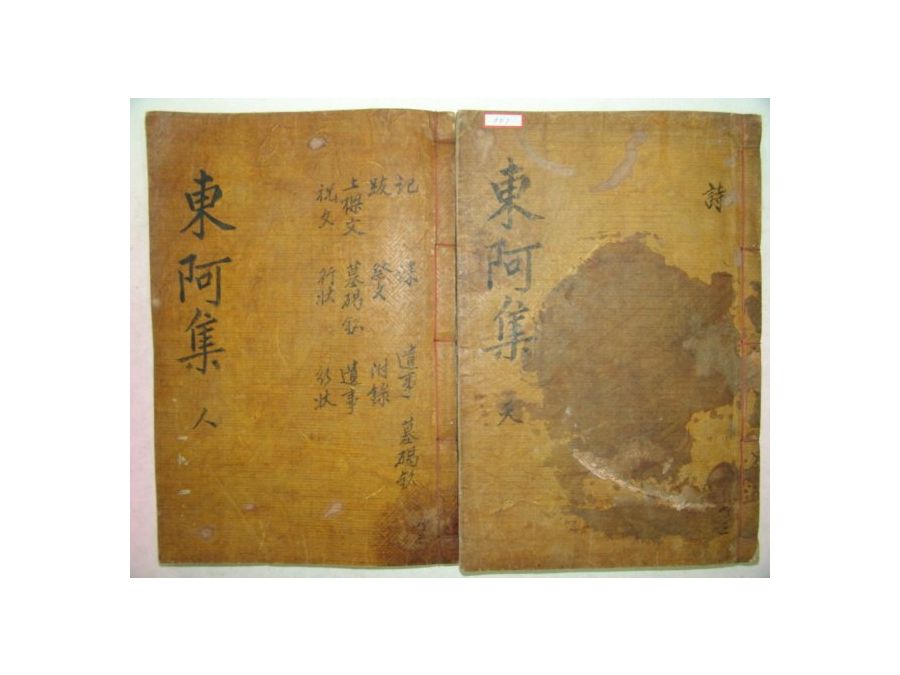 詩
東阿集 天
記 錄 遺事 墓碣銘
跋 祭文 附錄
上樑文 墓碣銘 遺事
祝文 行狀 行狀
東阿集 人